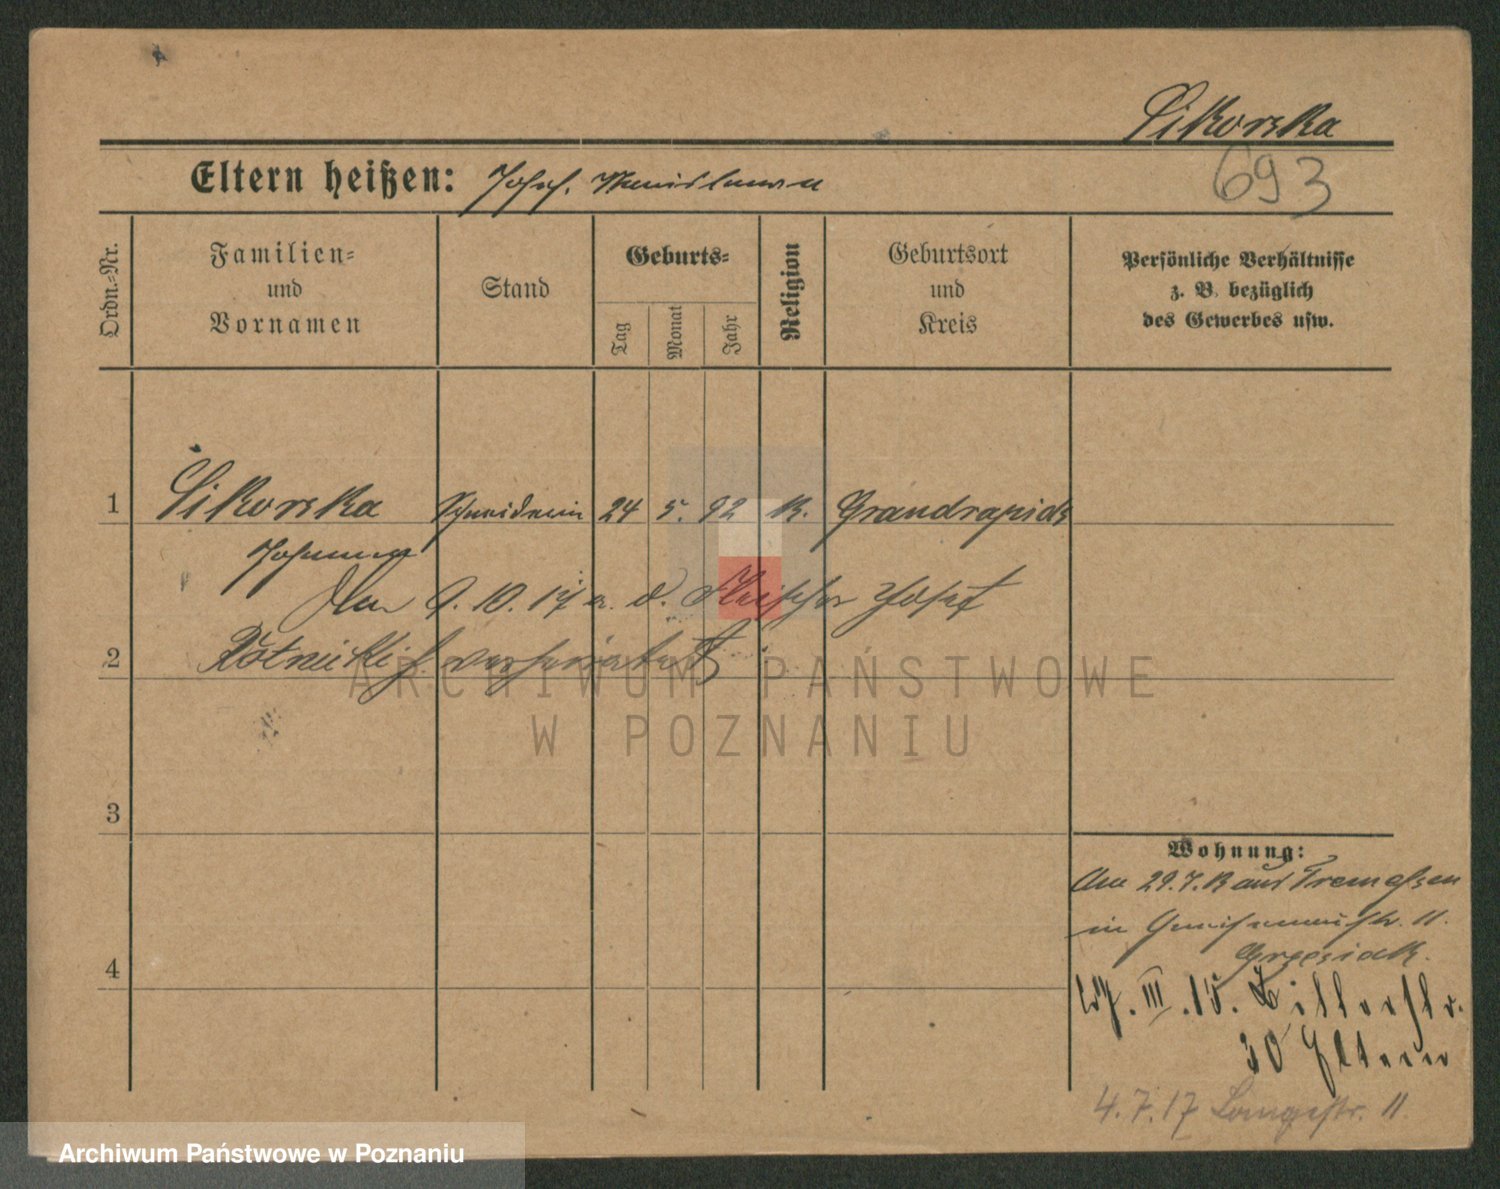 Sikorska
693
Eltern heißen: Josef.
Ordn.-Nr.
Familien-
und
Vornamen
Stand
Geburts-
Tag
Monat
Jahr
Religion
Geburtsort
und
Kreis
Persönliche Verhältnisse
z. B. bezüglich
des Gewerbes usw.
1 Sikorska Schneiderin 24 5. 92 K. Grandrapids
Johanna
Am 9. 10. 17 a. d. Fleischer Josef
2 verheiratet
3
4
Wohnung:
Am 29.7.13 aus Tremessen
in Gneisenaustr. 11.
Grzesiak.
27. III. 15. Bitterstr.
30 Eltern
4.7.17 Langestr. 11
ARCHIWUM PAŃSTWOWE
W POZNANIU
Archiwum Państwowe w Poznaniu